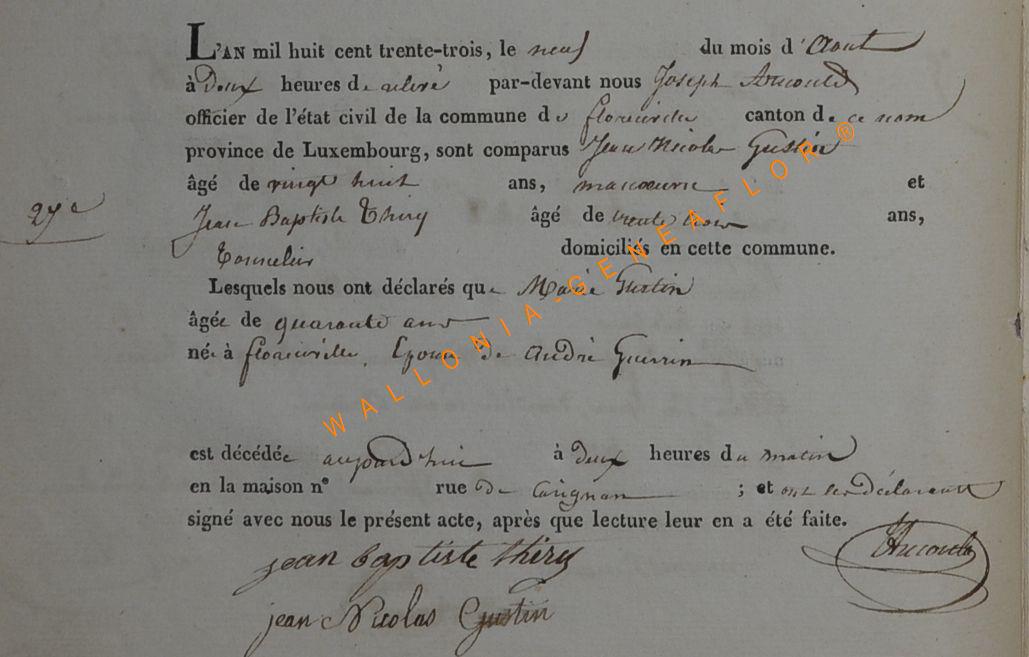 L'AN mil huit cent trente-trois, le neuf du mois d'Aout
à Deux heures de relevé par-devant nous Joseph Arnould
officier de l'état civil de la commune de florenville canton de ce nom
province de Luxembourg, sont comparus Jean Nicolas Gustin
âgé de vingt huit ans, et
27e
Jean Baptiste Thiry âgé de trente trois ans,
Tonnelier domiciliés en cette commune.
Lesquels nous ont déclarés que Marie Gustin
âgée de quarante ans
née à florenville, Epouse de André Guerrin
est décédée aujourd'hui à deux heures du matin
en la maison n° rue de Carignan ; et ont les déclarants
signé avec nous le présent acte, après que lecture leur en a été faite.
jean baptiste thiry Arnould
jean Nicolas Gustin
WALLONIA-GENEAFLOR®